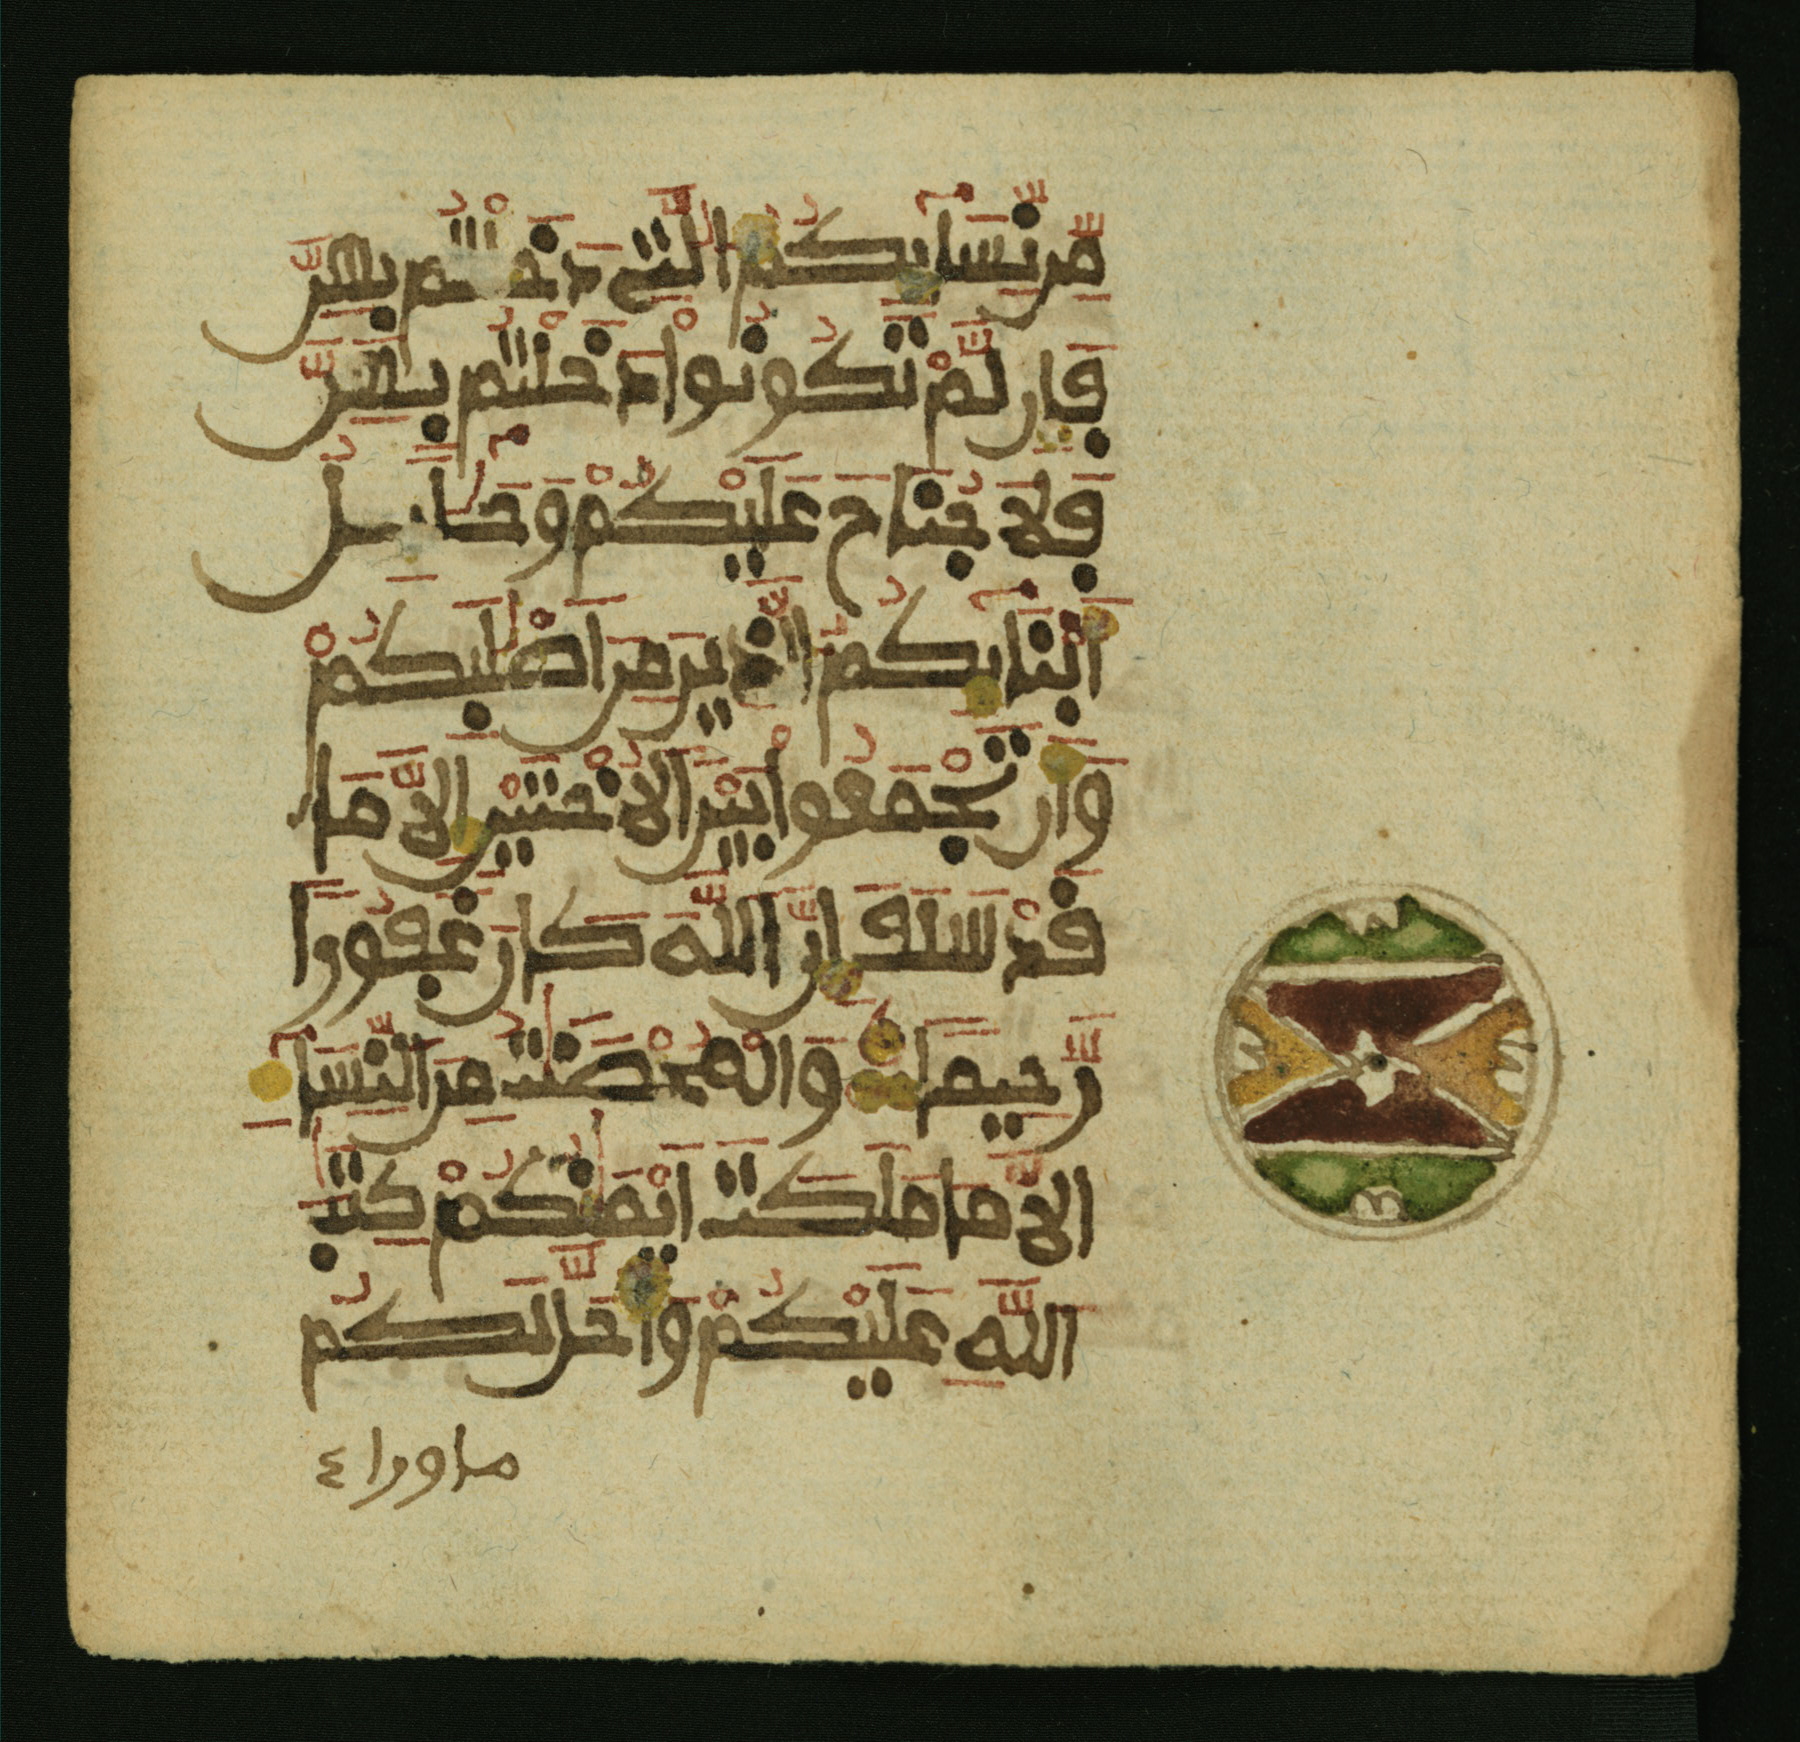 مِّن نِّسَآئِكُمُ الَّٰتِي دَخَلْتُم بِهِنَّ
فَإِن لَّمْ تَكُونُوا دَخَلْتُم بِهِنَّ
فَلَا جُنَاحَ عَلَيْكُمْ وَحَلَٰٓئِلُ
أَبْنَآئِكُمُ الَّذِينَ مِنَ اصْلَٰبِكُمْ
وَأَن تَجْمَعُوا بَيْنَ الْأُخْتَيْنِ إِلَّا مَا
قَدْ سَلَفَ إِنَّ اللَّهَ كَانَ غَفُورًا
رَّحِيمًا وَالْمُحْصَنَٰتُ مِنَ النِّسَآءِ
إِلَّا مَا مَلَكَتَ اَيْمَٰنُكُمْ كِتَٰبَ
اللَّهِ عَلَيْكُمْ وَأَحَلَّ لَكُم
ما وراء